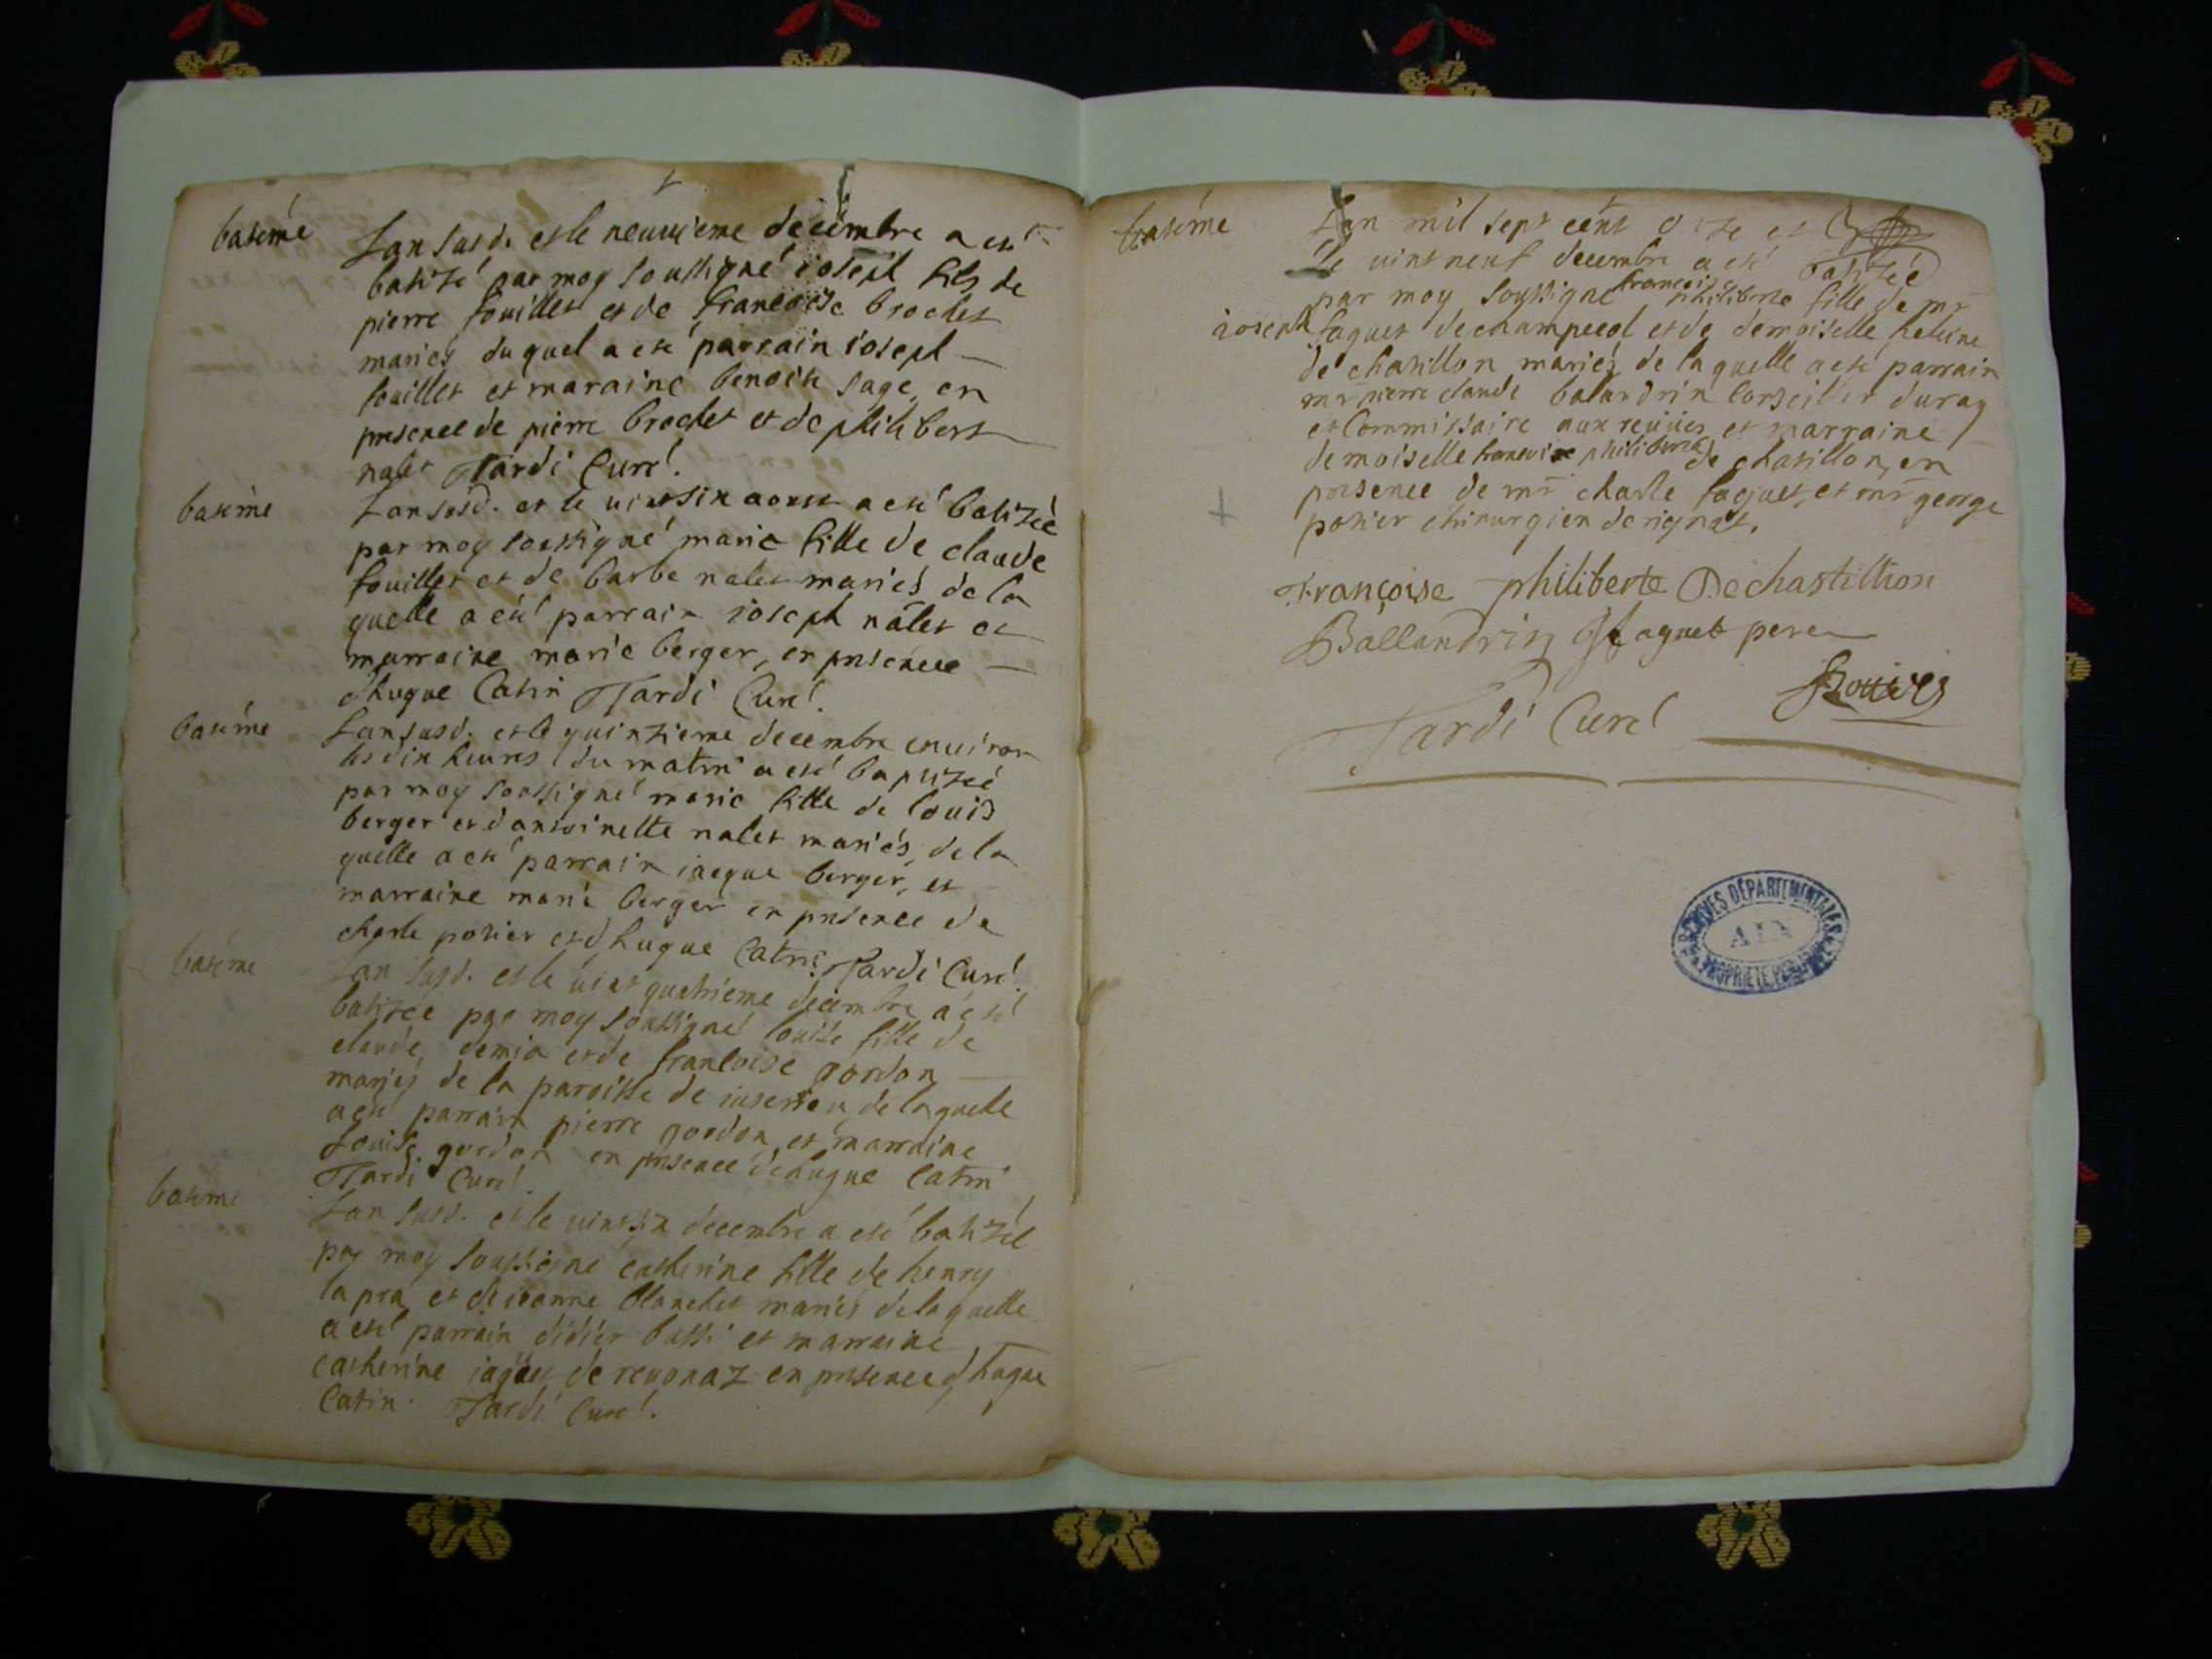 batéme
Lan susd. et le neuvieme decembre a esté
batizé par moy soussigné ioseph fils de
pierre fouillet et de francoise brochet
mariés duquel a esté parrain ioseph
fouillet et maraine benoite sage, en
presence de pierre brochet et de philibert
nalet Tardi Curé.
batéme
Lan susd. et le uint six aoust a esté batizée
par moy soussigné marie fille de claude
fouillet et de barbe nalet mariés de la
quelle a esté parrain ioseph nalet et
marraine marie berger, en presence
dhugue Catin Tardi Curé.
batéme
Lan susd. et le quinzieme decembre enuiron
les dix heures du matin a esté baptizée
par moy soussigné marie fille de louis
berger et dantoinette nalet mariés, de la
quelle a esté parrain iacque berger, et
marraine marie berger en presence de
charle potier et dhugue Catin. Tardi Curé.
batéme
Lan susd. et le uint quatrieme decembre a esté
batizee par moy soussigné louise fille de
claude demia et de francoise gordon
mariés de la paroisse de iuserieu de laquelle
a esté parrain pierre gordon, et marraine
Louise gordon en presence dehugue Catin
Tardi Curé.
bateme
Lan susd. et le uint six decembre a esté batizée
par moy soussigné catherine fille de henry
la pra et de ieanne blanchet mariés de laquelle
a esté parrain didier bussi et marraine
catherine iaquet de reuonaz en presence dhugue
Catin. Tardi Curé.
batéme
Lan mil sept cent et
le uint neuf decembre a esté batizée
par moy soussigné francoise philiberte fille de mr
ioseph faguet de champecol et de demoiselle heleine
de chatillon mariés de laquelle a esté parrain
mr pierre claude balandrin Conseiller du roy
et Commissaire aux reuües et marraine
demoiselle francoise philiberte de chatillon, en
presence de mr charle faguet, et mr george
potier chirurgien de rignat.
Françoise philiberte Dechastillion
Ballandrin faguet pere
Tardi Curé
ARCHIVES DÉPARTEMENTALES
AIN
PROPRIÉTÉ PUBLIQUE